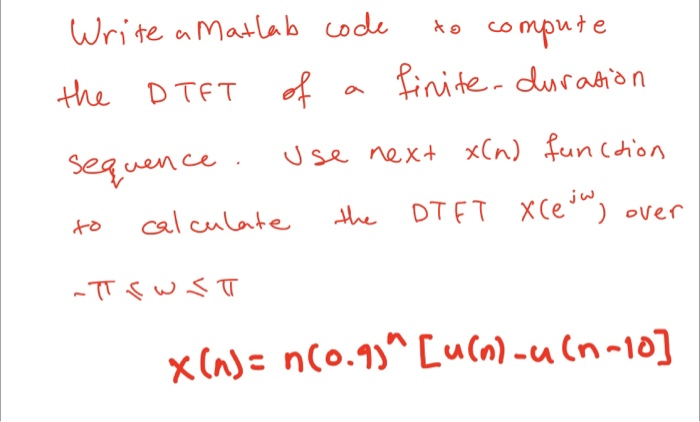 Write a Matlab code to compute
the DTFT of a finite-duration
sequence. Use next x(n) function
to calculate the DTFT X(e^jw) over
-π ≤ w ≤ π
x(n)= n(0.9)^n [u(n)-u(n-10]